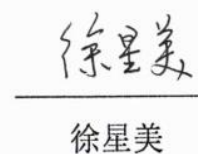 徐星美
徐星美